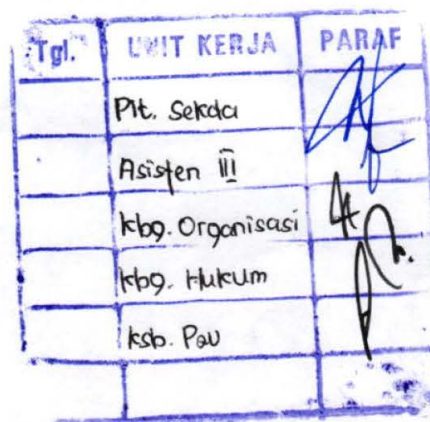 Tgl. UNIT KERJA PARAF
Plt. Sekda
Asisten III
kbg. Organisasi
kbg. Hukum
ksb. Pau